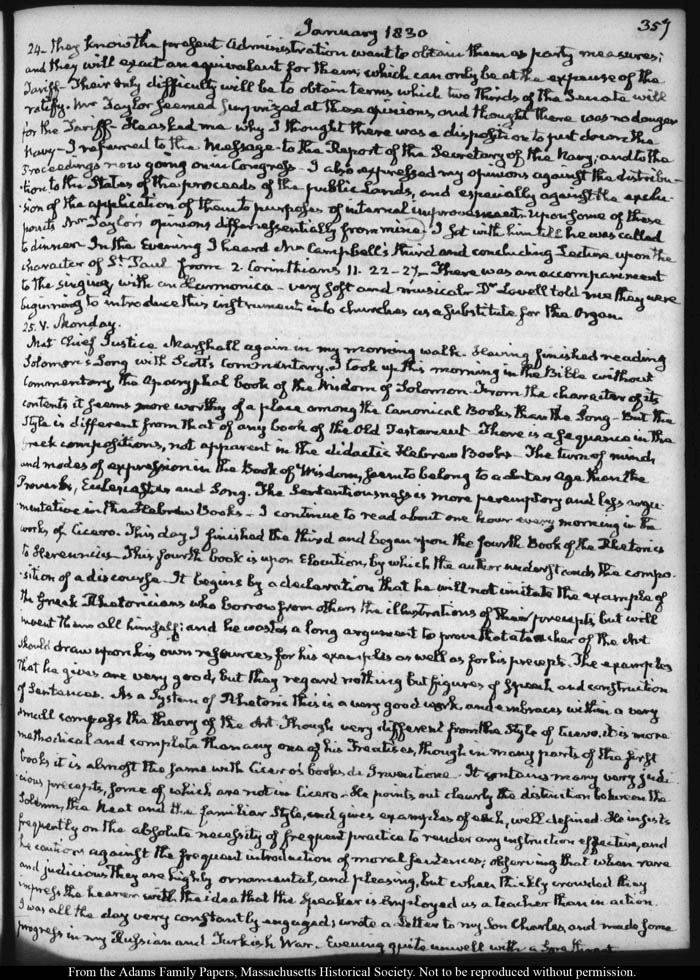 January 1830
357
24. they know the present Administration want to obtain them as party measures;
and they will exact an equivalent for them, which can only be at the expense of the
Tariff. Their only difficulty will be to obtain terms which two thirds of the Senate will
ratify. Mr Taylor seemed surprized at these opinions, and thought there was no danger
for the Tariff. He asked me why I thought there was a disposition to put down the
Navy. I referred to the Message to the Report of the Secretary of the Navy; and to the
proceedings now going on in Congress. I also expressed my opinions against the distribu-
tion to the States of the proceeds of the public Lands, and especially against the exclu-
sion of the application of them to purposes of internal improvement. Upon some of these
points Mr Taylor's opinions differ essentially from mine. I sat with him till he was called
to dinner. In the Evening I heard Mr Campbell's third and concluding Lecture upon the
character of St Paul from 2 Corinthians 11. 22-27. There was an accompaniment
to the singing with an Harmonica very soft and musical. Dr Lovell told me they were
beginning to introduce this instrument into churches as a substitute for the Organ.
25. V. Monday.
Met Chief Justice Marshall again in my morning walk. Having finished reading
Solomon's Song with Scott's Commentary, I took up this morning in the Bible without
Commentary the Apocryphal book of the Wisdom of Solomon. From the character of its
contents it seems more worthy of a place among the Canonical Books than the Song. But the
Style is different from that of any book of the Old Testament. There is a sequence in the
Greek compositions, not apparent in the didactic Hebrew Books. The turn of mind
and modes of expression in the Book of Wisdom, seem to belong to a later age than the
Proverbs, Ecclesiastes and Song. The sententiousness is more peremptory and less argu-
mentative in the Hebrew Books. I continue to read about one hour every morning in the
works of Cicero. This day I finished the third and began upon the fourth Book of the Rhetorics
to Herennius. This fourth book is upon Elocution, by which the author understands the compo-
sition of a discourse. It begins by a declaration that he will not imitate the example of
the Greek Rhetoricians who borrow from others the illustrations of their precepts, but will
invent them all himself; and he wastes a long argument to prove that a teacher of the Art
should draw upon his own resources for his examples as well as for his precepts. The examples
that he gives are very good, but they regard nothing but figures of speech and construction
of sentences. As a System of Rhetoric this is a very good work, and embraces within a very
small compass the theory of the Art. Though very different from the Style of Cicero, it is more
methodical and complete than any one of his Treatises, though in many parts of the first
books it is almost the same with Cicero's books de Inventione. It contains many very judi-
cious precepts, some of which are not in Cicero. He points out clearly the distinction between the
Solemn, the Neat and the familiar Style, and gives examples of each, well defined. He insists
frequently on the absolute necessity of frequent practice to render any instruction effective, and
he cautions against the frequent introduction of moral sentences; observing that when rare
and judicious they are highly ornamental, and pleasing, but when thickly crowded they
impress the hearer with the idea that the Speaker is employed as a teacher than in action.
I was all the day very constantly engaged; wrote a Letter to my Son Charles, and made some
progress in my Russian and Turkish War. Evening quite unwell with a sore throat
From the Adams Family Papers, Massachusetts Historical Society. Not to be reproduced without permission.